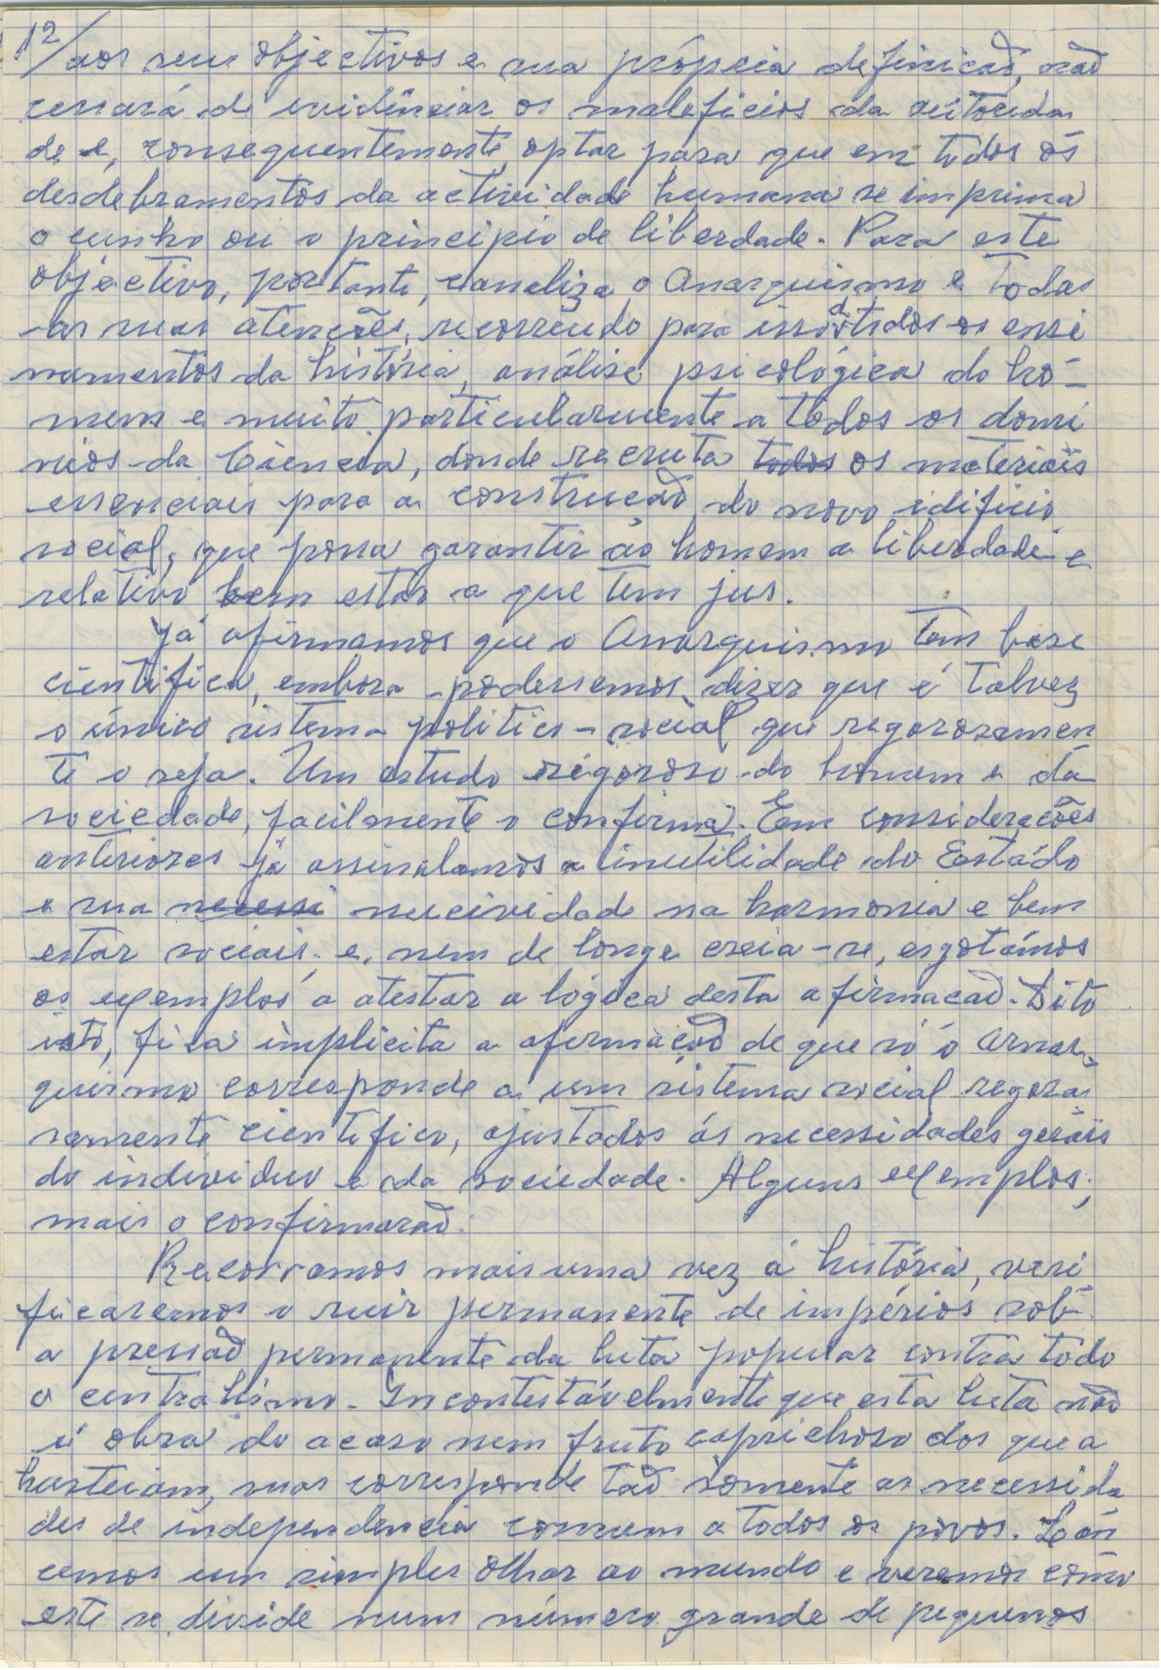 12/ aos seus objectivos e sua própria definicaõ, naõ
cessará de evidênciar os maleficios da autorida
de e, consequentemente, optar para que em todos os
desdebramentos da actividade humana se imprima
o cunho ou o principio de liberdade. Para este
objectivo, portanto, canaliza o Anarquismo e todas
as suas atenções, recorrendo para isso a todos os ensi
namentos da história, análise psicológica do ho-
mem e muito particularmente a todos os domi
nios da Ciência, donde recruta todos os materiais
essenciais para a construcaõ do novo edificio
social, que possa garantir ao homem a liberdade e
relativo bem estar a que tem jus.
Já afirmamos que o Anarquismo tem base
cientifica, embora podessemos dizer que é talvez
o único sistema politico-social que regorosamen
te o seja. Um estudo rigoroso do homem e da
sociedade, facilmente o confirma. Em considerações
anteriores já assinalamos a inutilidade do Estado
e sua necessi nucividade na harmonia e bem
estar sociais. e, nem de longe creia-se, esgotámos
os exemplos a atestar a lógica desta afirmacaõ. Dito
isto, fica implicita a afirmaçaõ de que só o Anar-
quismo corresponde a um sistema social regoro
samente cientifico, ajustados ás necessidades gerais
do individuo e da sociedade. Alguns exemplos,
mais o confirmaraõ.
Recorramos mais uma vez á história, veri
ficaremos o ruir permanente de impérios sob
a pressaõ permanente da luta popular contra todo
o centralismo. Incontestávelmente que esta luta naõ
é obra do acaso nem fruto caprichoso dos que a
hasteiam, mas corresponde taõ somente as necessida
des de independencia comum a todos os povos. Lan
cemos um simples olhar ao mundo e veremos como
este se divide num número grande de pequenos